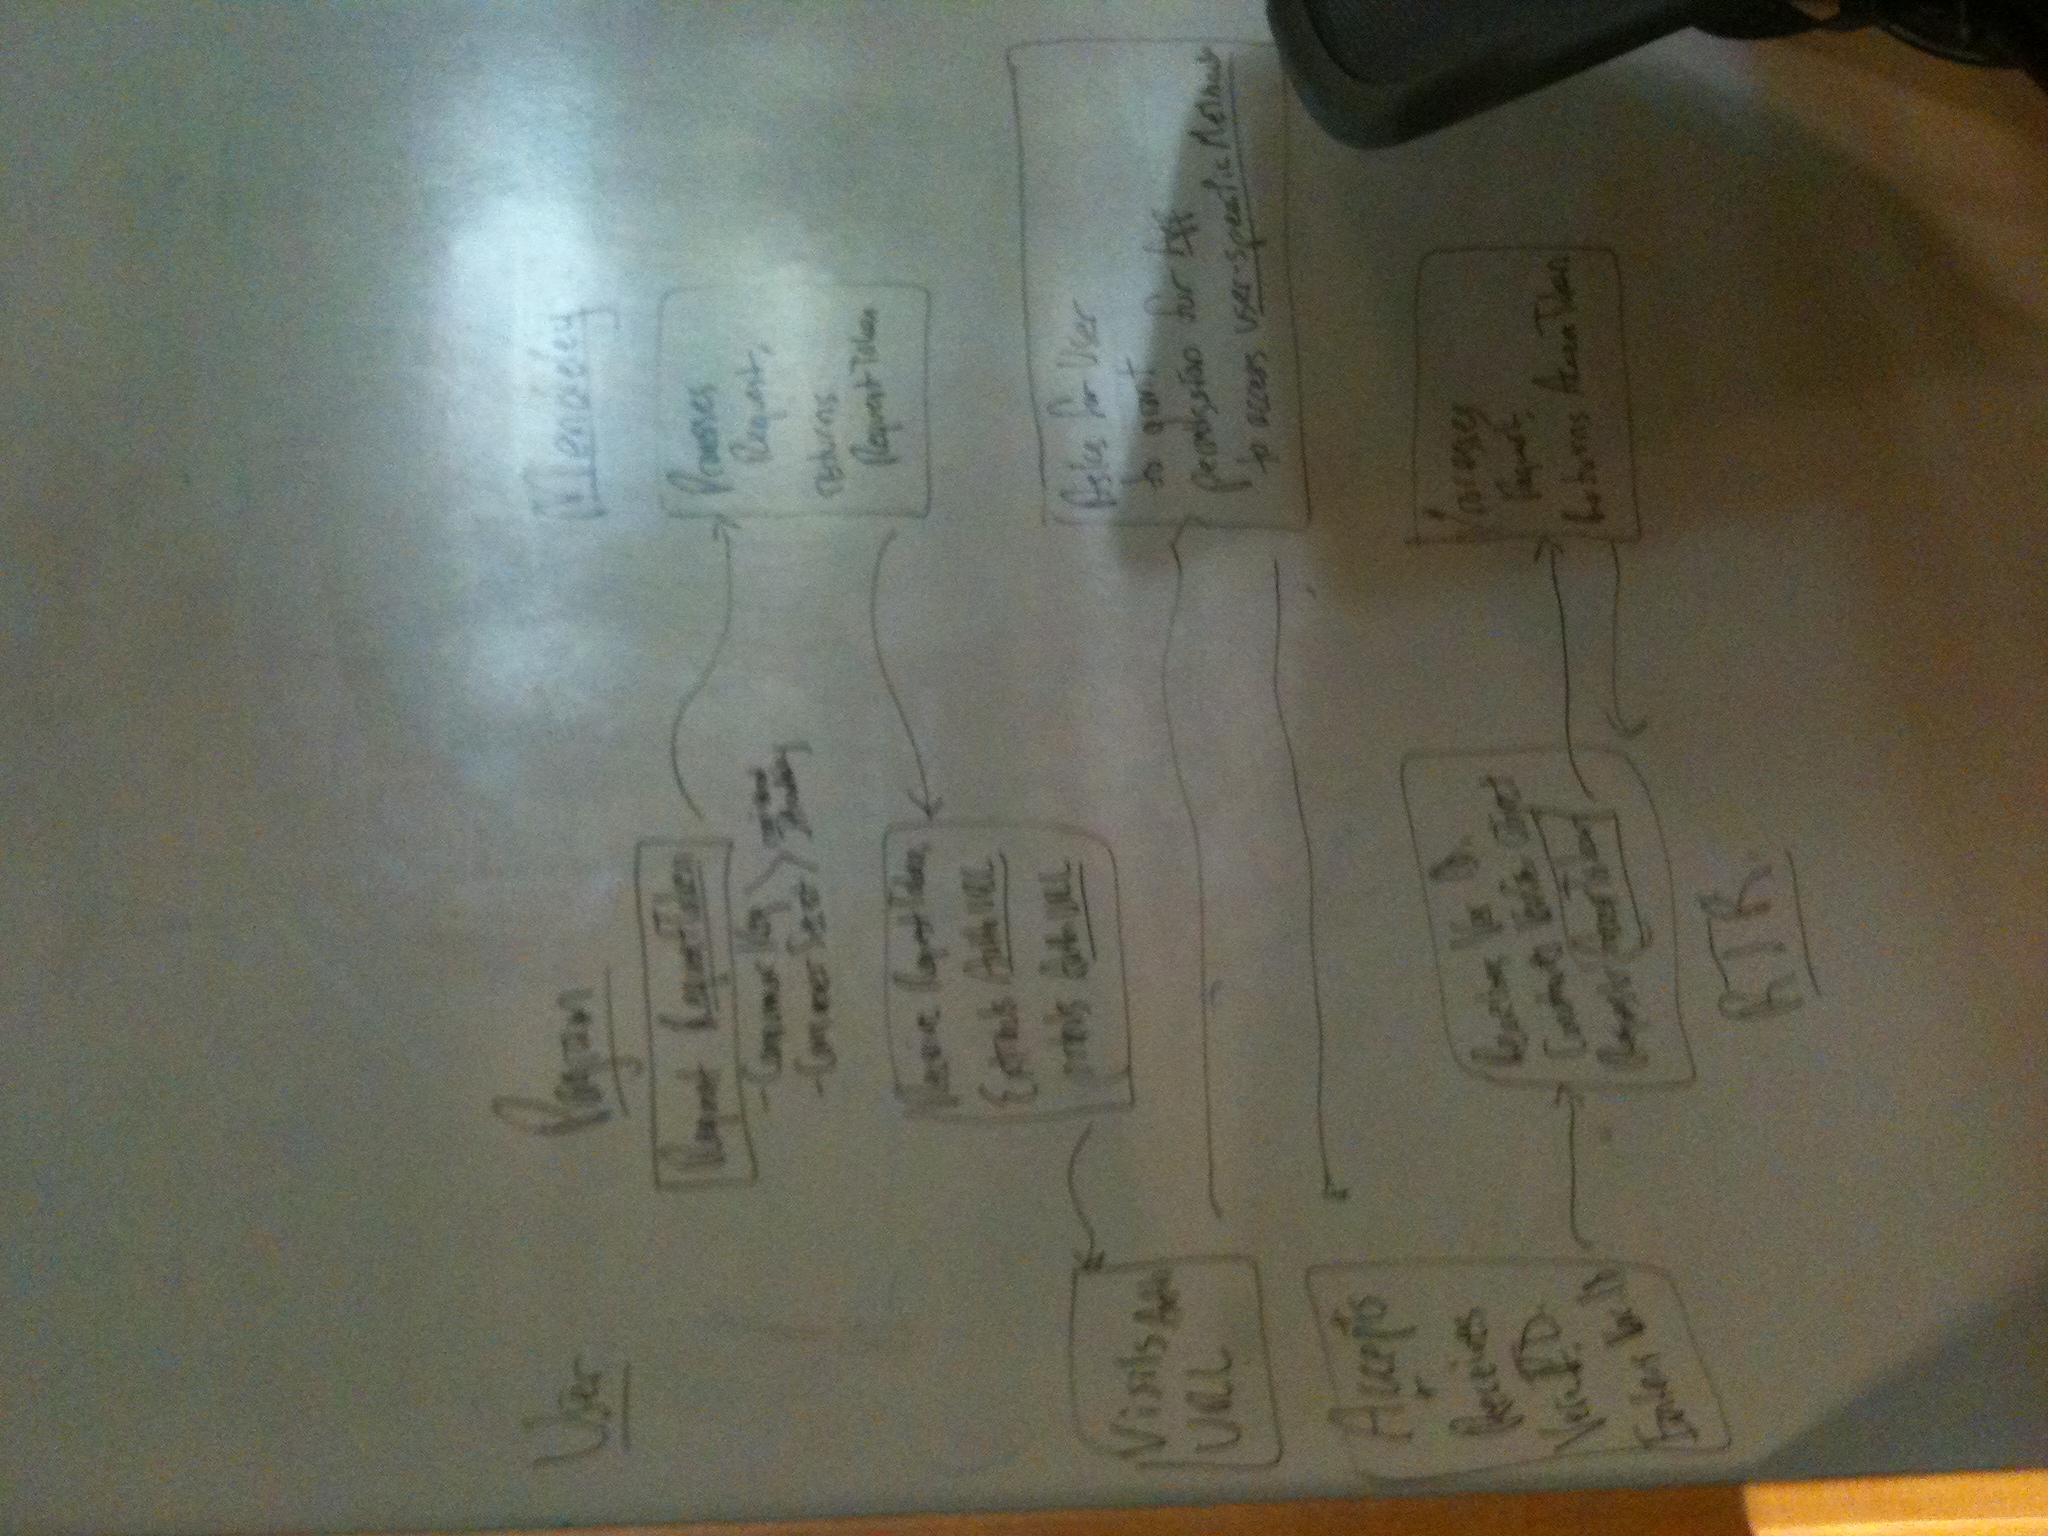 User
Program
Mendeley
Request RequestToken
- Consumer Key
- Consumer Secret
Processes
Request,
returns
RequestToken
Receive RequestToken,
Extracts AuthURL
AuthURL
Visits Auth
URL
Asks for User
to grant
permission for
to access user-specific Methods
Accepts
+
Receives
Ver. ID.
Enters Ver. ID
Receives Ver ID.
Constructs object
Requests AccessToken
Processes
Request,
Returns AccessToken
RTR